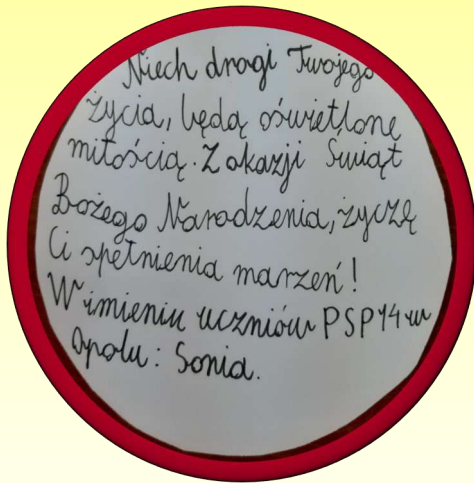 Niech drogi Twojego
życia, będą oświetlone
miłością. Z okazji Świąt
Bożego Narodzenia, życzę
Ci spełnienia marzeń!
W imieniu uczniów PSP 14 w
Opolu: Sonia.